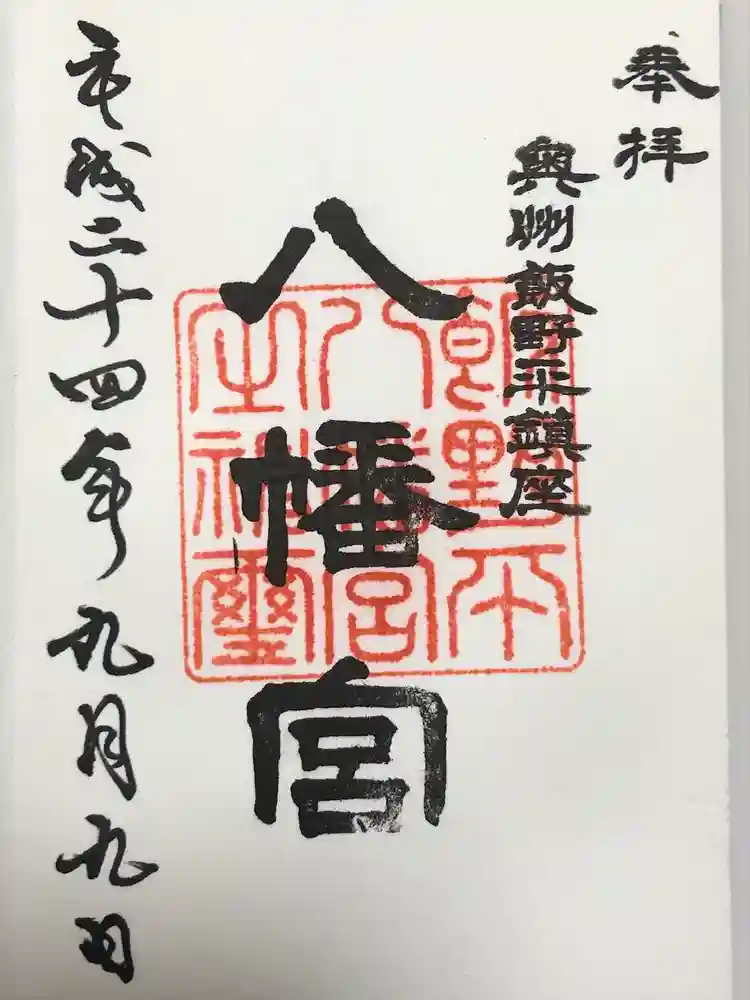 奉拝
奥州飯野平鎮座
八幡宮
飯野平
八幡宮
之社璽
平成二十四年九月九日